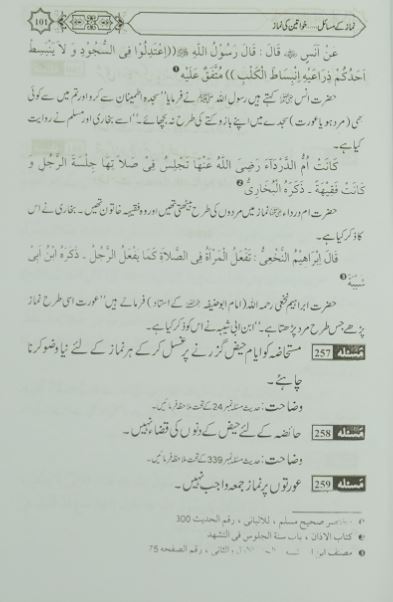 101
نماز کے مسائل ..... خواتین کی نماز
عَنْ اَنَسٍ ﷺ قَالَ : قَالَ رَسُوْلُ اللّٰهِ ﷺ (( اِعْتَدِلُوْا فِی السُّجُوْدِ وَ لَا يَنْبَسِطُ
اَحَدُكُمْ ذِرَاعَيْهِ اِنْبِسَاطَ الْكَلْبِ )) مُتَّفَقٌ عَلَيْهِ ❶
حضرت انس کہتے ہیں رسول اللہ ﷺ نے فرمایا ”سجدہ اطمینان سے کرو اور تم میں سے کوئی
بھی (مرد ہو یا عورت) سجدے میں اپنے بازو کتے کی طرح نہ بچھائے۔“ اسے بخاری اور مسلم نے روایت
کیا ہے۔
كَانَتْ اُمُّ الدَّرْدَاءِ رَضِیَ اللّٰهُ عَنْهَا تَجْلِسُ فِیْ صَلَا تِهَا جِلْسَةَ الرَّجُلِ وَ
كَانَتْ فَقِيْهَةً ۔ ذَكَرَهُ الْبُخَارِیُّ ❷
حضرت ام درداء نماز میں مردوں کی طرح بیٹھتی تھیں اور وہ فقیہہ خاتون تھیں۔ بخاری نے اس
کا ذکر کیا ہے۔
قَالَ اِبْرَاهِيْمُ النَّخْعِیُّ : تَفْعَلُ الْمَرْأَةُ فِی الصَّلَاةِ كَمَا يَفْعَلُ الرَّجُلُ ۔ ذَكَرَهُ ابْنُ اَبِیْ
شَيْبَةَ ❸
حضرت ابراہیم نخعی رحمہ اللہ (امام ابوحنیفہ کے استاد) فرماتے ہیں ”عورت اسی طرح نماز
پڑھے جس طرح مرد پڑھتا ہے۔“ ابن ابی شیبہ نے اس کو ذکر کیا ہے۔
مسئله 257 مستحاضہ کو ایام حیض گزرنے پر غسل کر کے ہر نماز کے لئے نیا وضو کرنا
چاہئے۔
وضاحت : حدیث مسئلہ نمبر 24 کے تحت ملاحظہ فرمائیں۔
مسئله 258 حائضہ کے لئے حیض کے دنوں کی قضاء نہیں۔
وضاحت : حدیث مسئلہ نمبر 339 کے تحت ملاحظہ فرمائیں۔
مسئله 259 عورتوں پر نماز جمعہ واجب نہیں۔
❶ مختصر صحیح مسلم ، للالبانی ، رقم الحدیث 300
❷ کتاب الاذان ، باب سنة الجلوس فی التشهد
❸ مصنف ابن والثانی ، رقم الصفحه 75